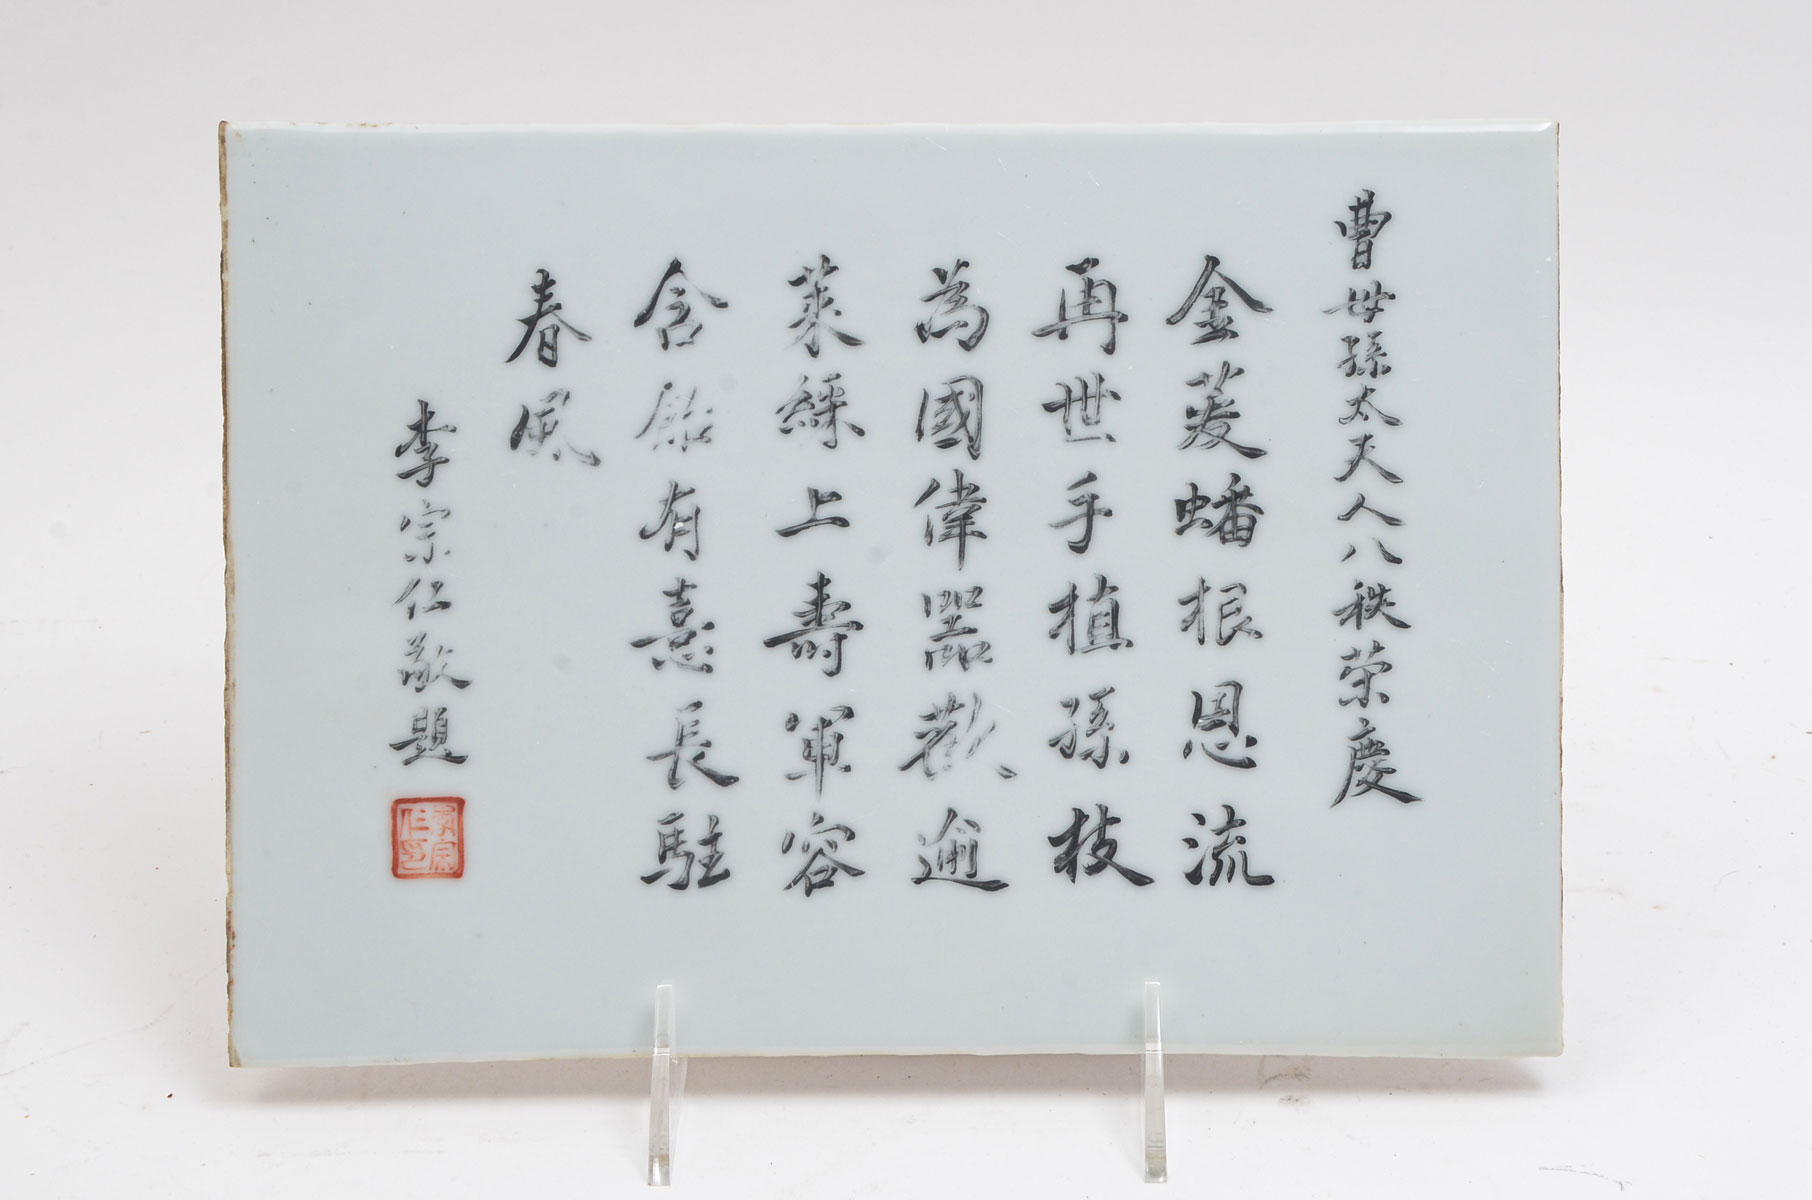 曹母孫太夫人八秩荣慶
金萲蟠根恩流
再世手植孫枝
為國偉器歡逾
萊綵上壽軍容
含飴有憙長駐
春風
李宗仁敬題
李宗仁印